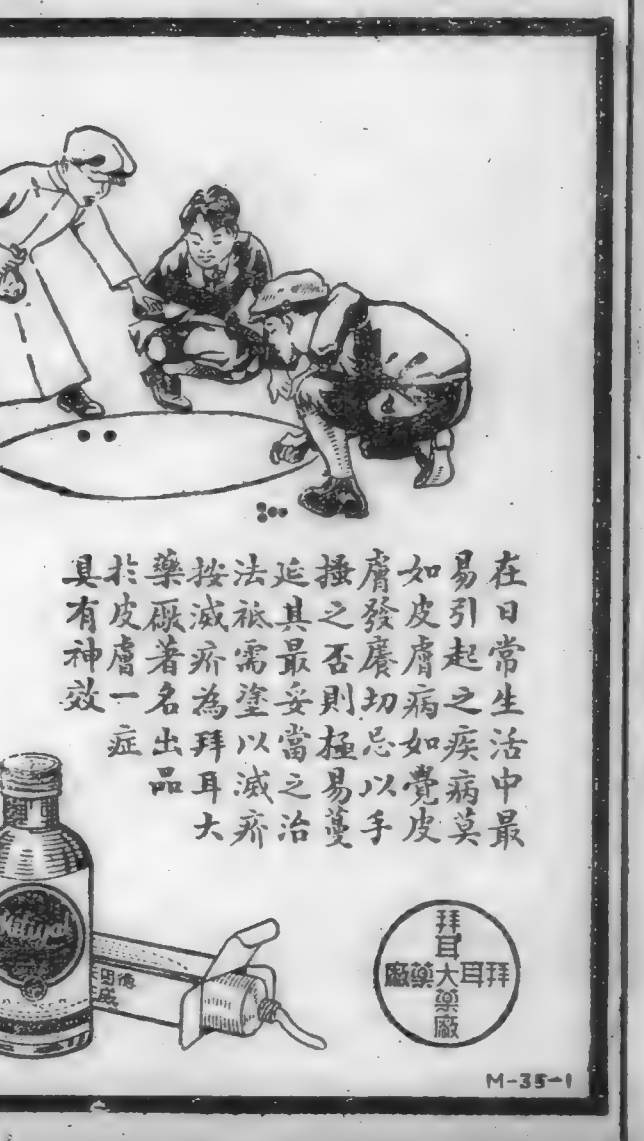 在日常生活中最
易引起之疾病莫
如皮膚病如覺皮
膚發癢切忌以手
搔之否則極易蔓
延其最妥當之治
法祗需塗以滅疥
按滅疥為拜耳大
藥厰著名出品
於皮膚一症
具有神效
Mitigal
德
國
拜耳大藥廠
拜耳大藥廠
M-35-1